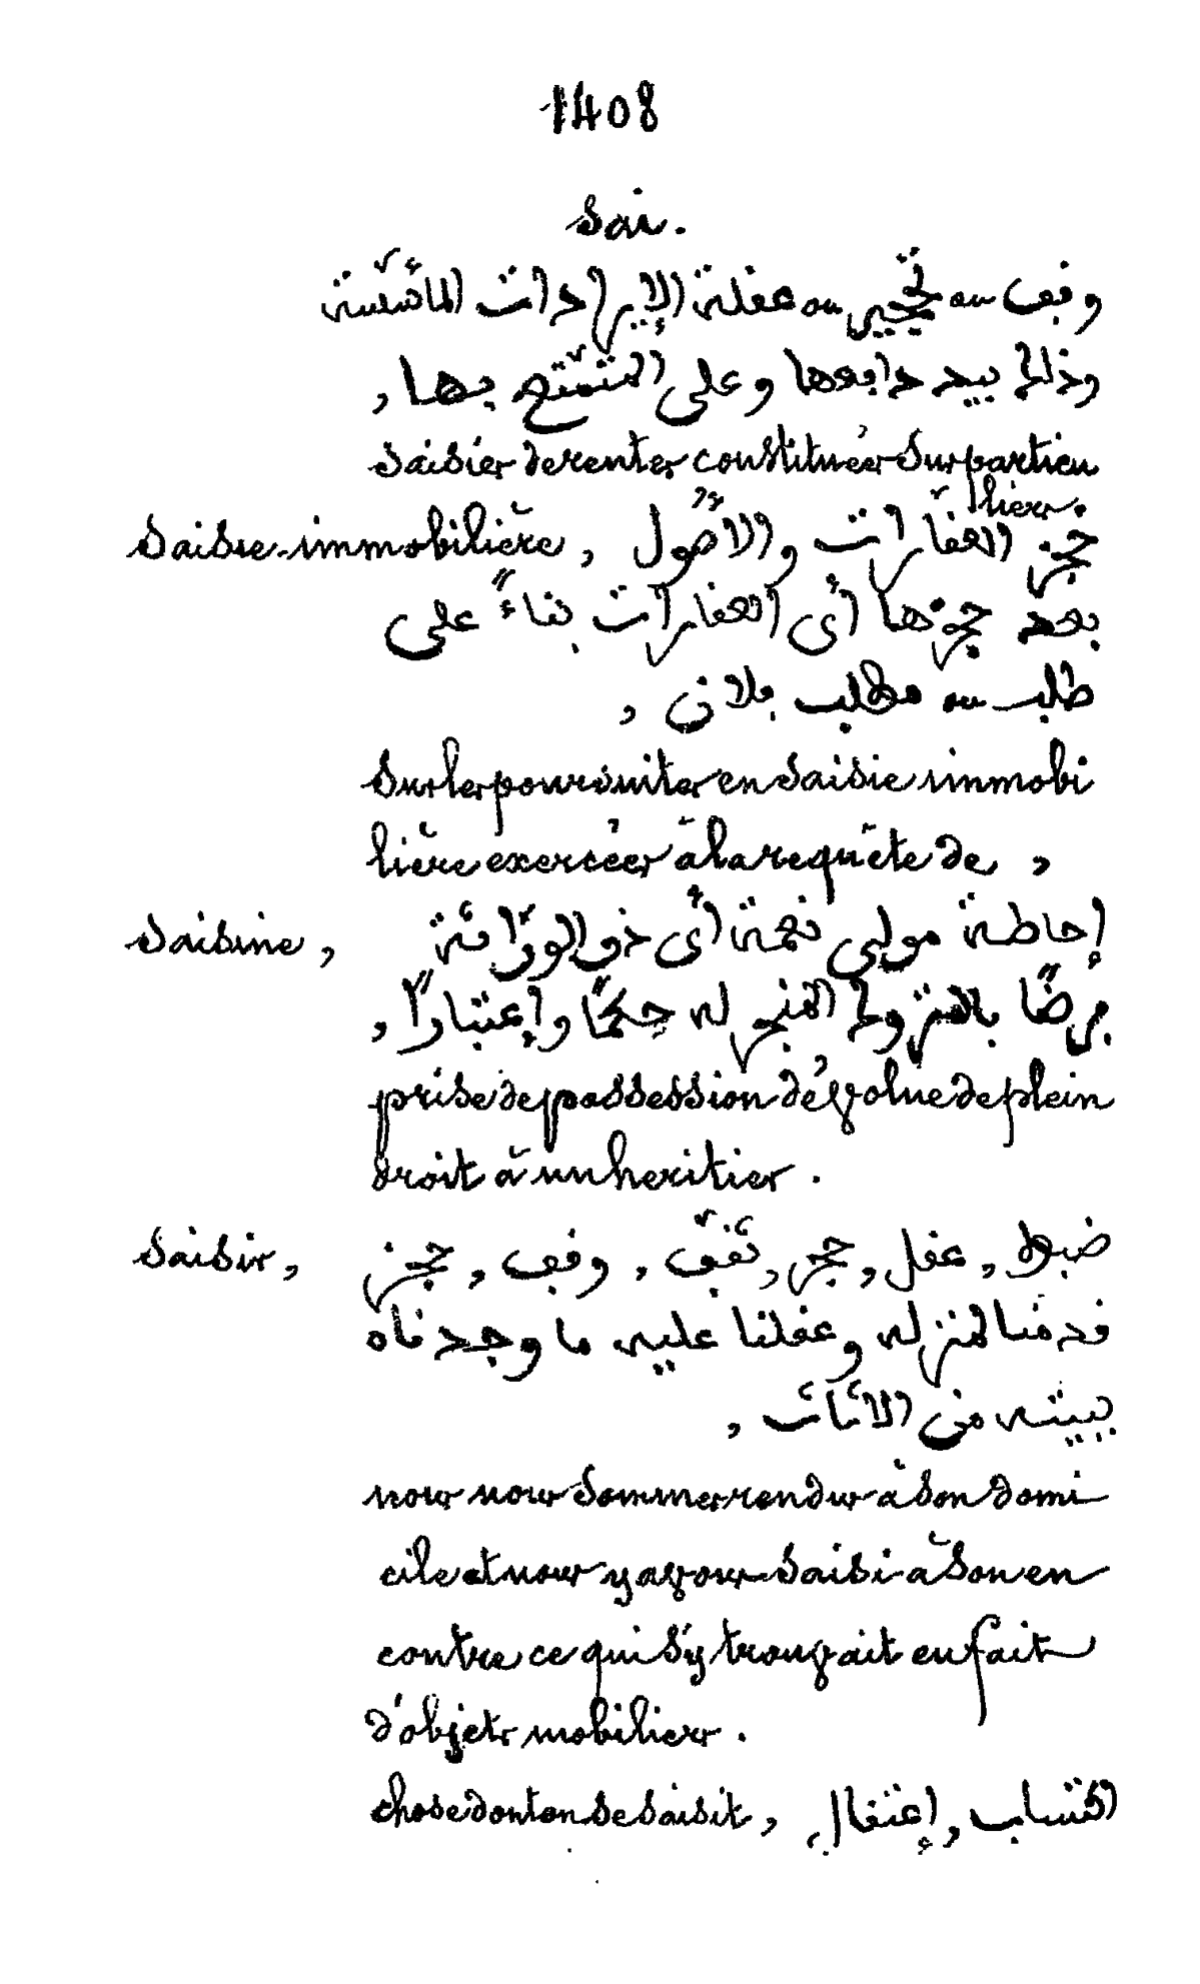 1408
Sai.
وقف ou تحجير ou عقلة الإيرادات المأسسة
وذلك بيد دافعها وعلى المتمتع بها ,
Saisies de rentes constituées sur particu
liers.
Saisie-immobilière , حجز العقارات والأصول
بعد حجزها أي العقارات بناءً على
طلب ou مطلب فلان ,
Sur les poursuites en saisie immobi
lière exercées à la requête de ,
Saisine , إحاطة مولى نعمة أي ذو الوراثة
فرضًا بالمتروك المنجر له حكمًا وإعتبارًا ,
prise de possession dévolue de plein
droit à un heritier .
Saisir , ضبط , عقل , حجر , ثقف , وقف , حجز
قدمنا لمنزله وعقلنا عليه ما وجدناه
ببيته من الأثاث ,
nous nous sommes rendus à son domi
cile et nous y avons saisi à son en
contre ce qui s'y trouvait en fait
d'objets mobiliers .
chose dont on se saisit , اكتساب , إعتقال